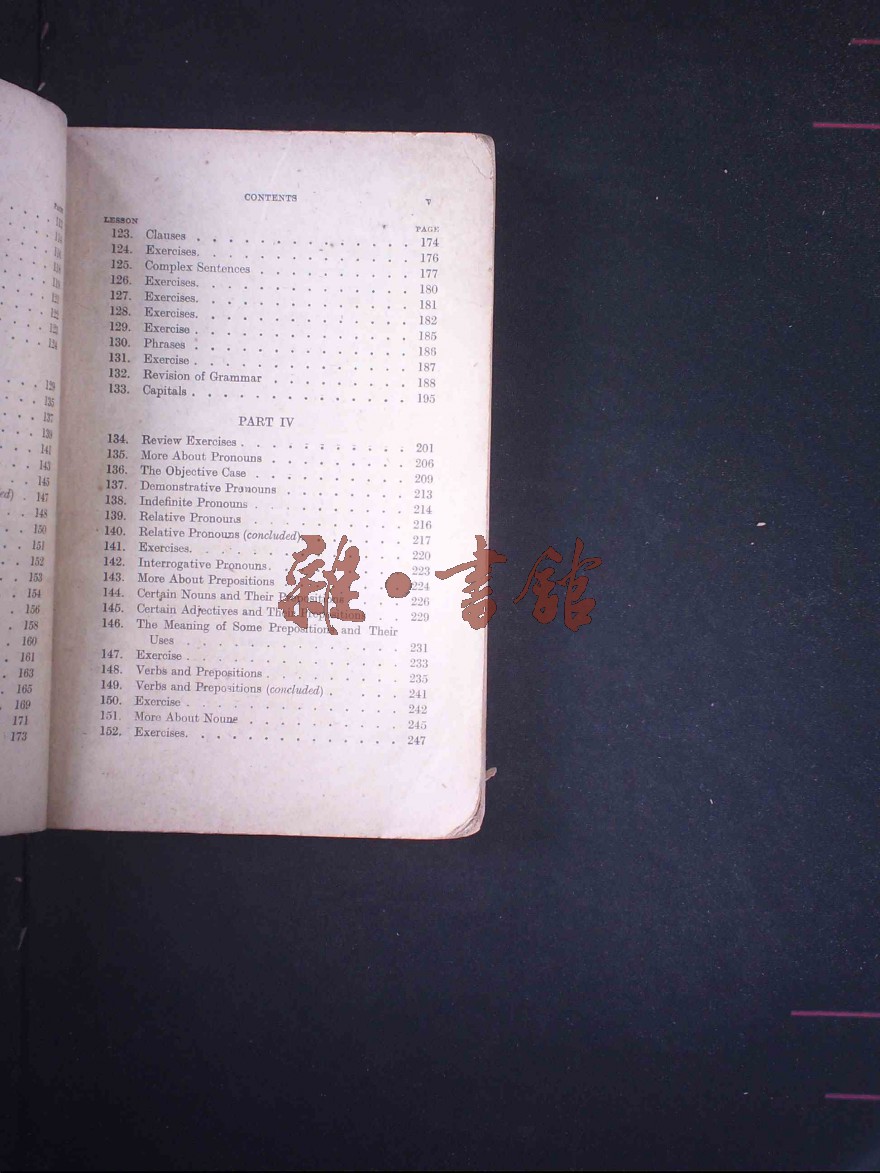 CONTENTS v
LESSON PAGE
123. Clauses 174
124. Exercises. 176
125. Complex Sentences 177
126. Exercises. 180
127. Exercises. 181
128. Exercises. 182
129. Exercise 185
130. Phrases 186
131. Exercise 187
132. Revision of Grammar 188
133. Capitals 195
PART IV
134. Review Exercises 201
135. More About Pronouns 206
136. The Objective Case 209
137. Demonstrative Pronouns 213
138. Indefinite Pronouns 214
139. Relative Pronouns 216
140. Relative Pronouns (concluded) 217
141. Exercises. 220
142. Interrogative Pronouns. 223
143. More About Prepositions 224
144. Certain Nouns and Their Prepositions 226
145. Certain Adjectives and Their Prepositions 229
146. The Meaning of Some Prepositions and Their
Uses 231
147. Exercise 233
148. Verbs and Prepositions 235
149. Verbs and Prepositions (concluded) 241
150. Exercise 242
151. More About Nouns 245
152. Exercises. 247
雜·書館
129
135
137
139
141
143
145
147
148
150
151
152
153
154
156
158
160
161
163
165
169
171
173